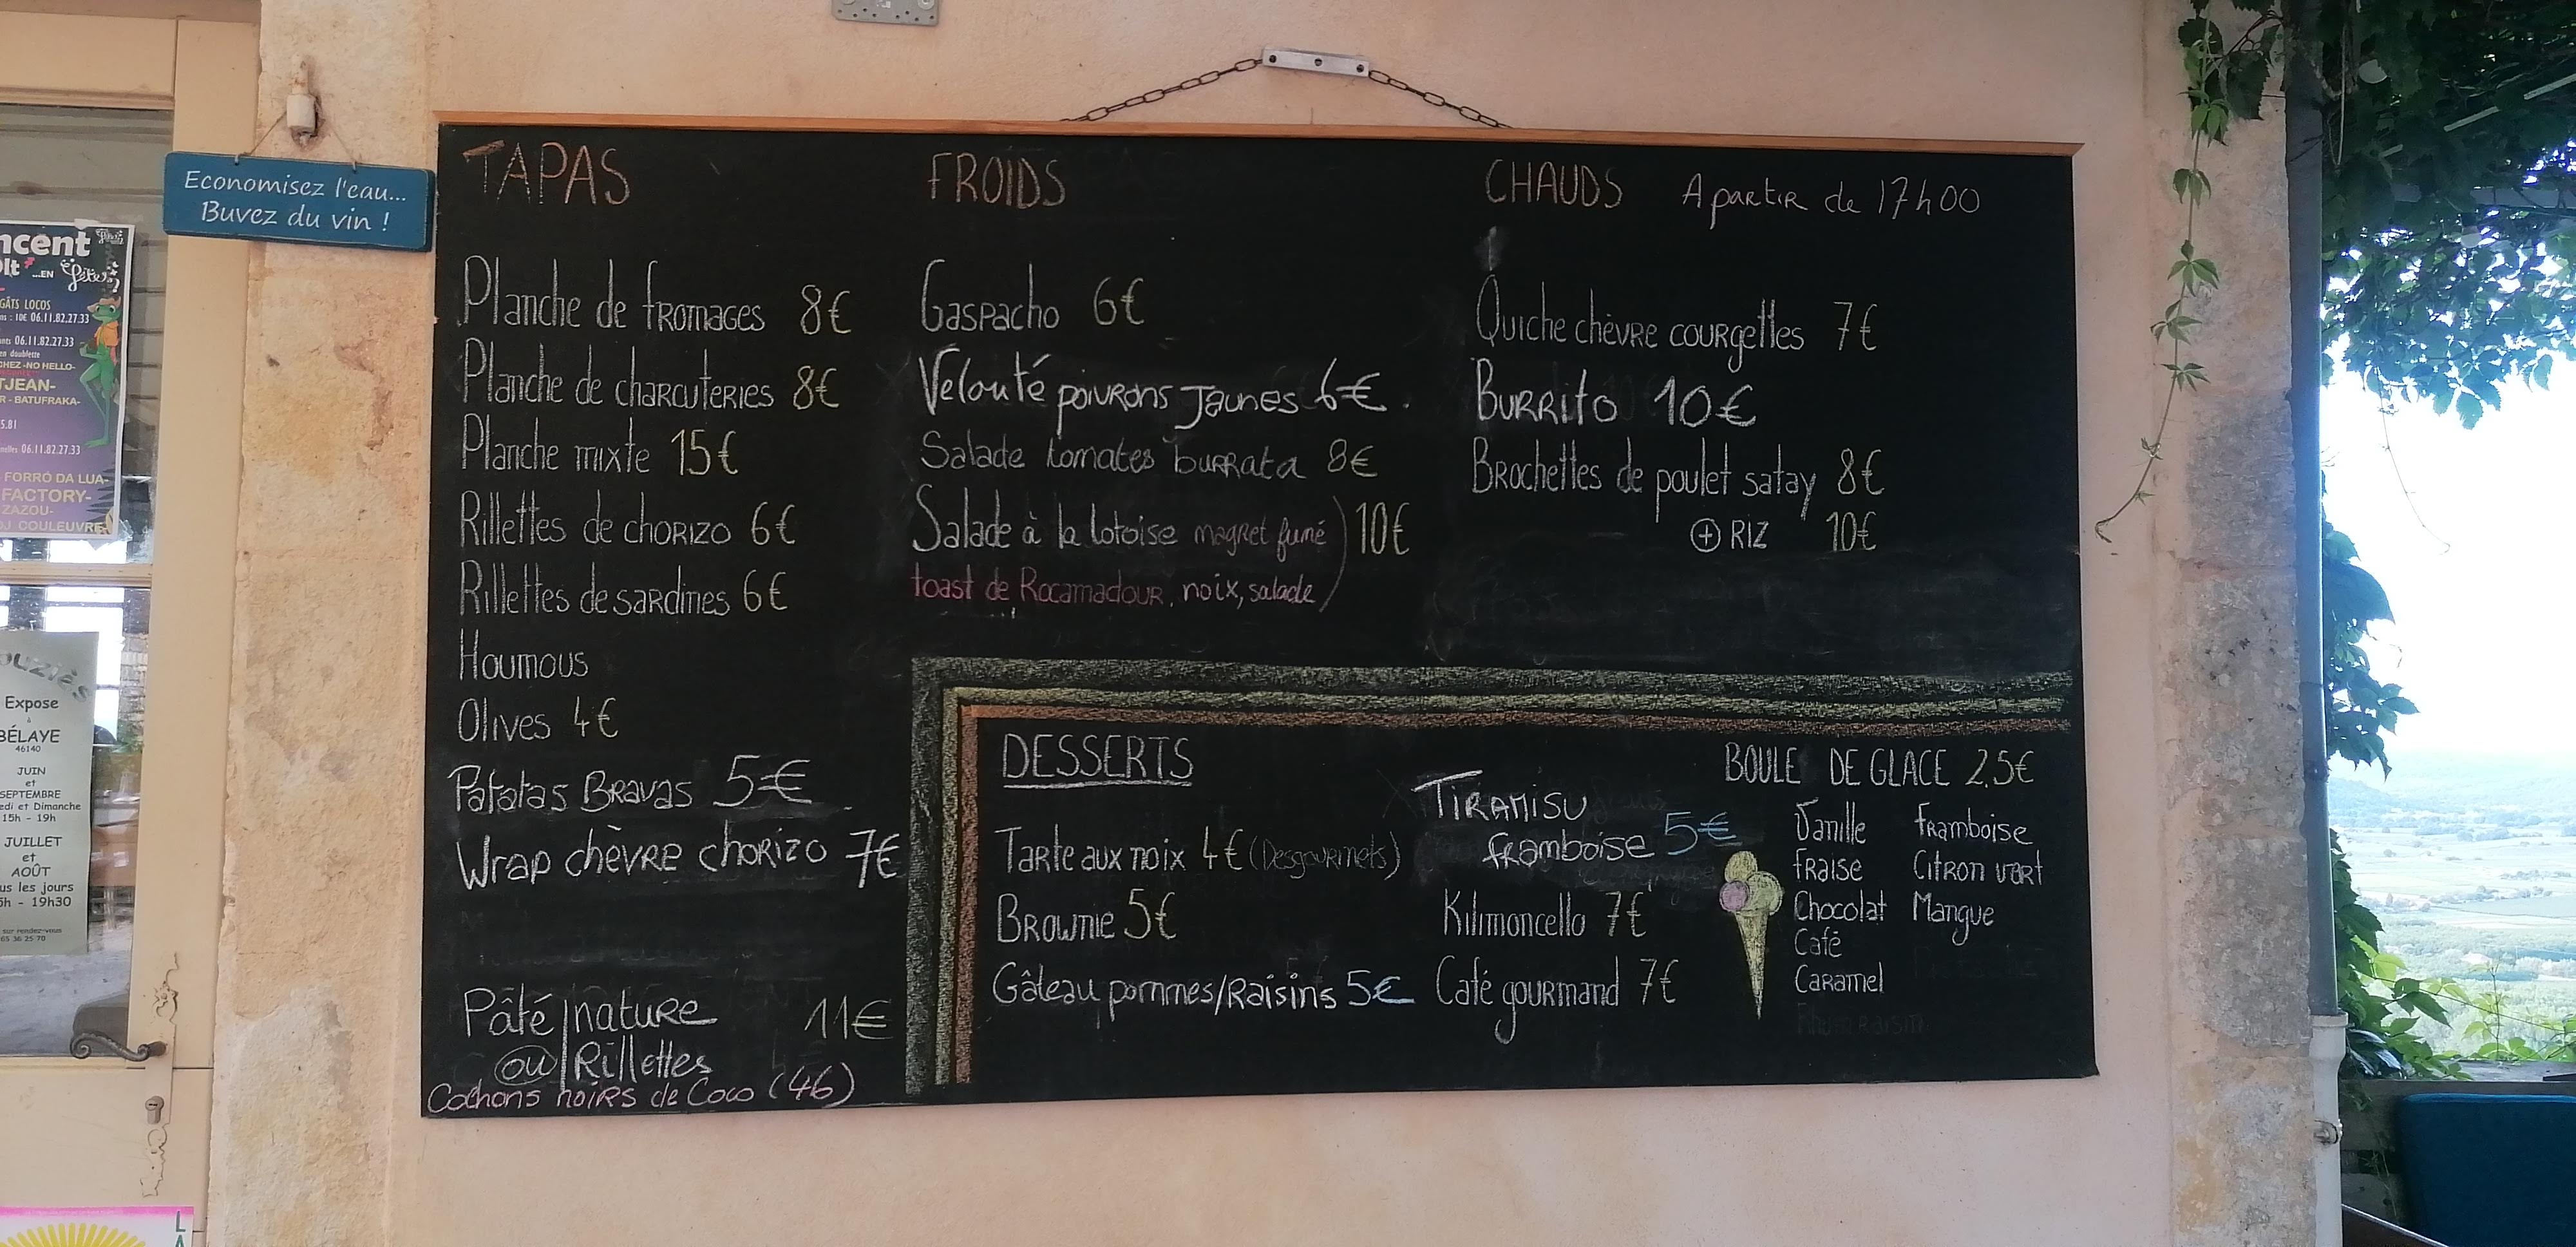 Economisez l'eau...
Buvez du vin !
TAPAS
Planche de fromages 8€
Planche de charcuteries 8€
Planche mixte 15€
Rillettes de chorizo 6€
Rillettes de sardines 6€
Houmous
Olives 4€
Patatas Bravas 5€
Wrap chèvre chorizo 7€
Pâté nature 11€
ou Rillettes
Cochons noirs de Coco (46)
FROIDS
Gaspacho 6€
Velouté poivrons jaunes 6€.
Salade tomates burrata 8€
Salade à la lotoise magret fumé 10€
toast de Rocamadour, noix, salade
CHAUDS A partir de 17h00
Quiche chèvre courgettes 7€
Burrito 10€
Brochettes de poulet satay 8€
+ RIZ 10€
DESSERTS
Tarte aux noix 4€ (Desgourmets)
Brownie 5€
Gâteau pommes/Raisins 5€
TIRAMISU
framboise 5€
Kilimoncello 7€
Café gourmand 7€
BOULE DE GLACE 2,5€
Vanille
fraise
Chocolat
Café
Caramel
Rhum raisin
Framboise
Citron vert
Mangue
ncent
...EN
GÂTS LOCOS
: 10€ 06.11.82.27.33
06.11.82.27.33
en doublette
CHEZ -NO HELLO-
TJEAN-
R - BATUFRAKA-
5.81
06.11.82.27.33
FORRÓ DA LUA-
FACTORY-
ZAZOU-
DJ COULEUVRE-
ouziès
Expose
à
BÉLAYE
46140
JUIN
et
SEPTEMBRE
edi et Dimanche
15h - 19h
JUILLET
et
AOÛT
us les jours
5h - 19h30
sur rendez-vous
65 36 25 70
L
A